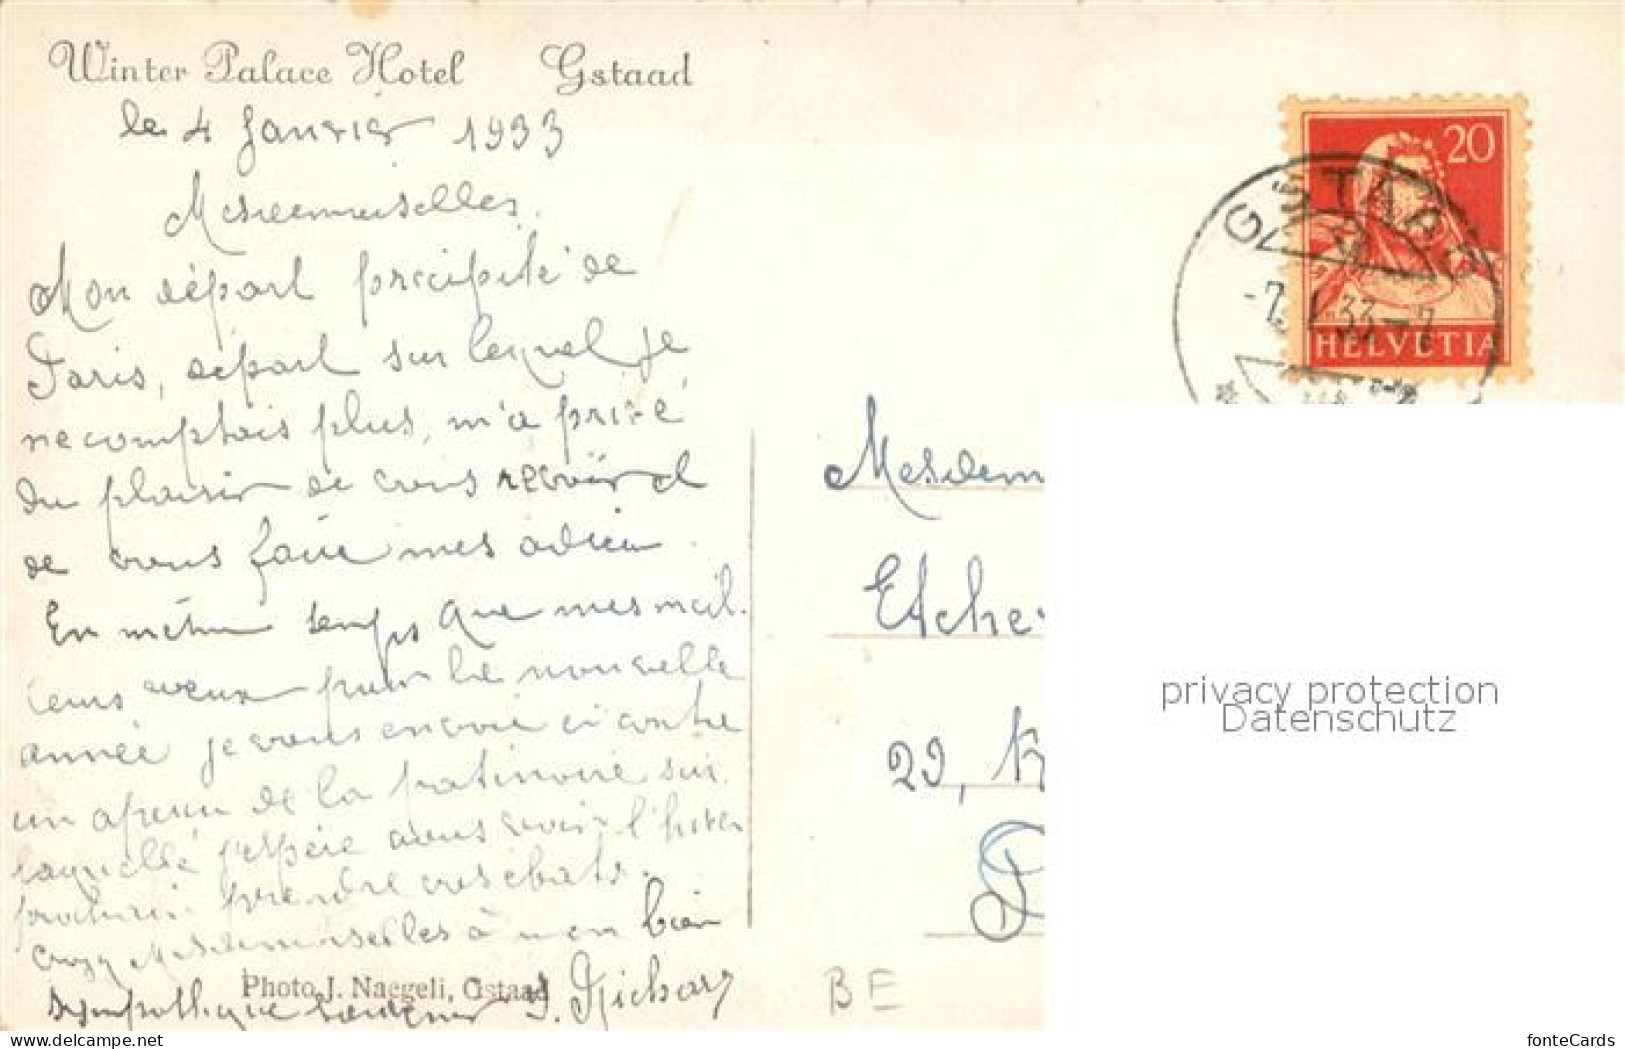 Winter Palace Hotel Gstaad
le 4 Janvier 1933
Mesdemoiselles,
Mon départ précipité de
Paris, départ sur lequel je
ne comptais plus, m'a privé
du plaisir de vous revoir et
de vous faire mes adieux.
En même temps que mes meil-
leurs vœux pour la nouvelle
année je vous envoie ci contre
un aperçu de la patinoire sur
laquelle j'espère vous voir l'hiver
prochain prendre vos ébats.
Croyez Mesdemoiselles à mon bien
sympathique souvenir J. Richard
Photo J. Naegeli, Gstaad
20
HELVETIA
GSTAAD
-7. I. 33-7
Mesdem
Etche
29,
BE
privacy protection
Datenschutz
www.ansichtskarten-center.de
fonteCards